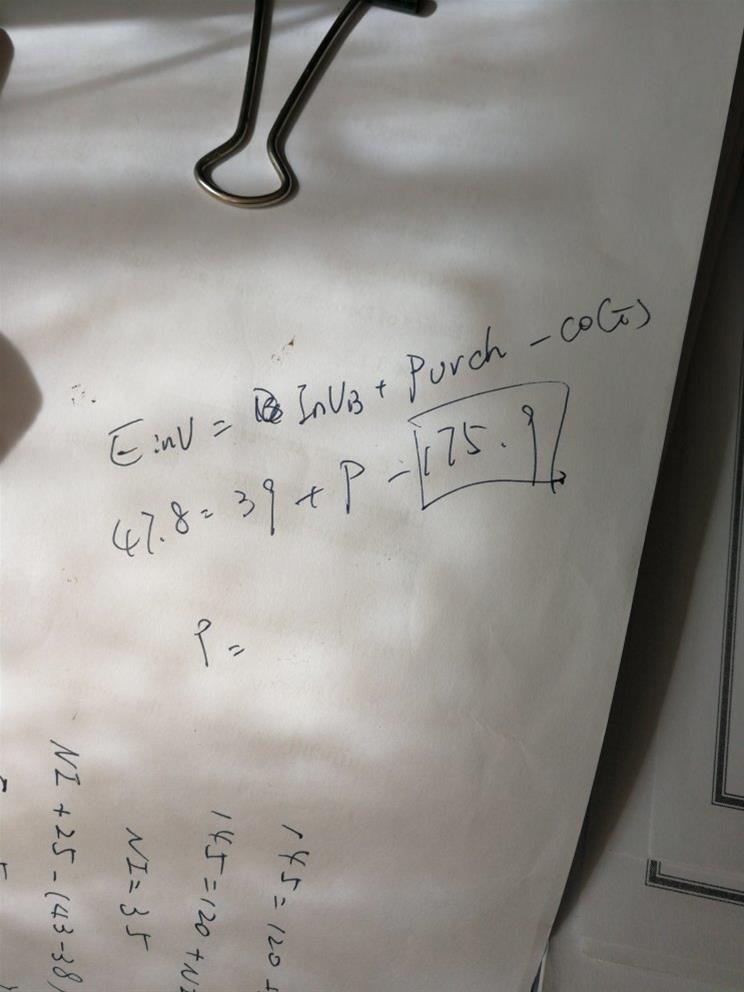 EinV = InVB + Purch - COGS
47.8 = 39 + P - 175.9
P =
145 = 120 +
145 = 120 + NI
NI = 35
NI + 25 - (43-38)